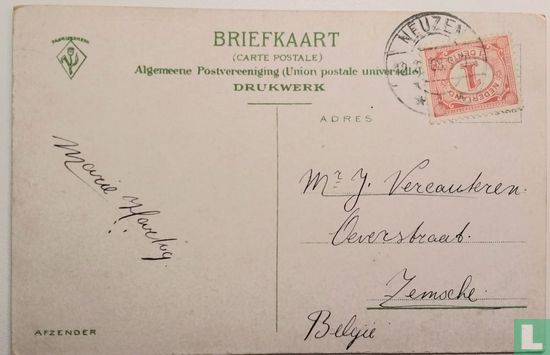 BRIEFKAART
(CARTE POSTALE)
Algemeene Postvereeniging (Union postale universelle)
DRUKWERK
NEUZEN
NEDERLAND
1
ADRES
Marie Hartog
Mr J. Vercauteren.
Oeverstraat.
Temsche.
België
AFZENDER